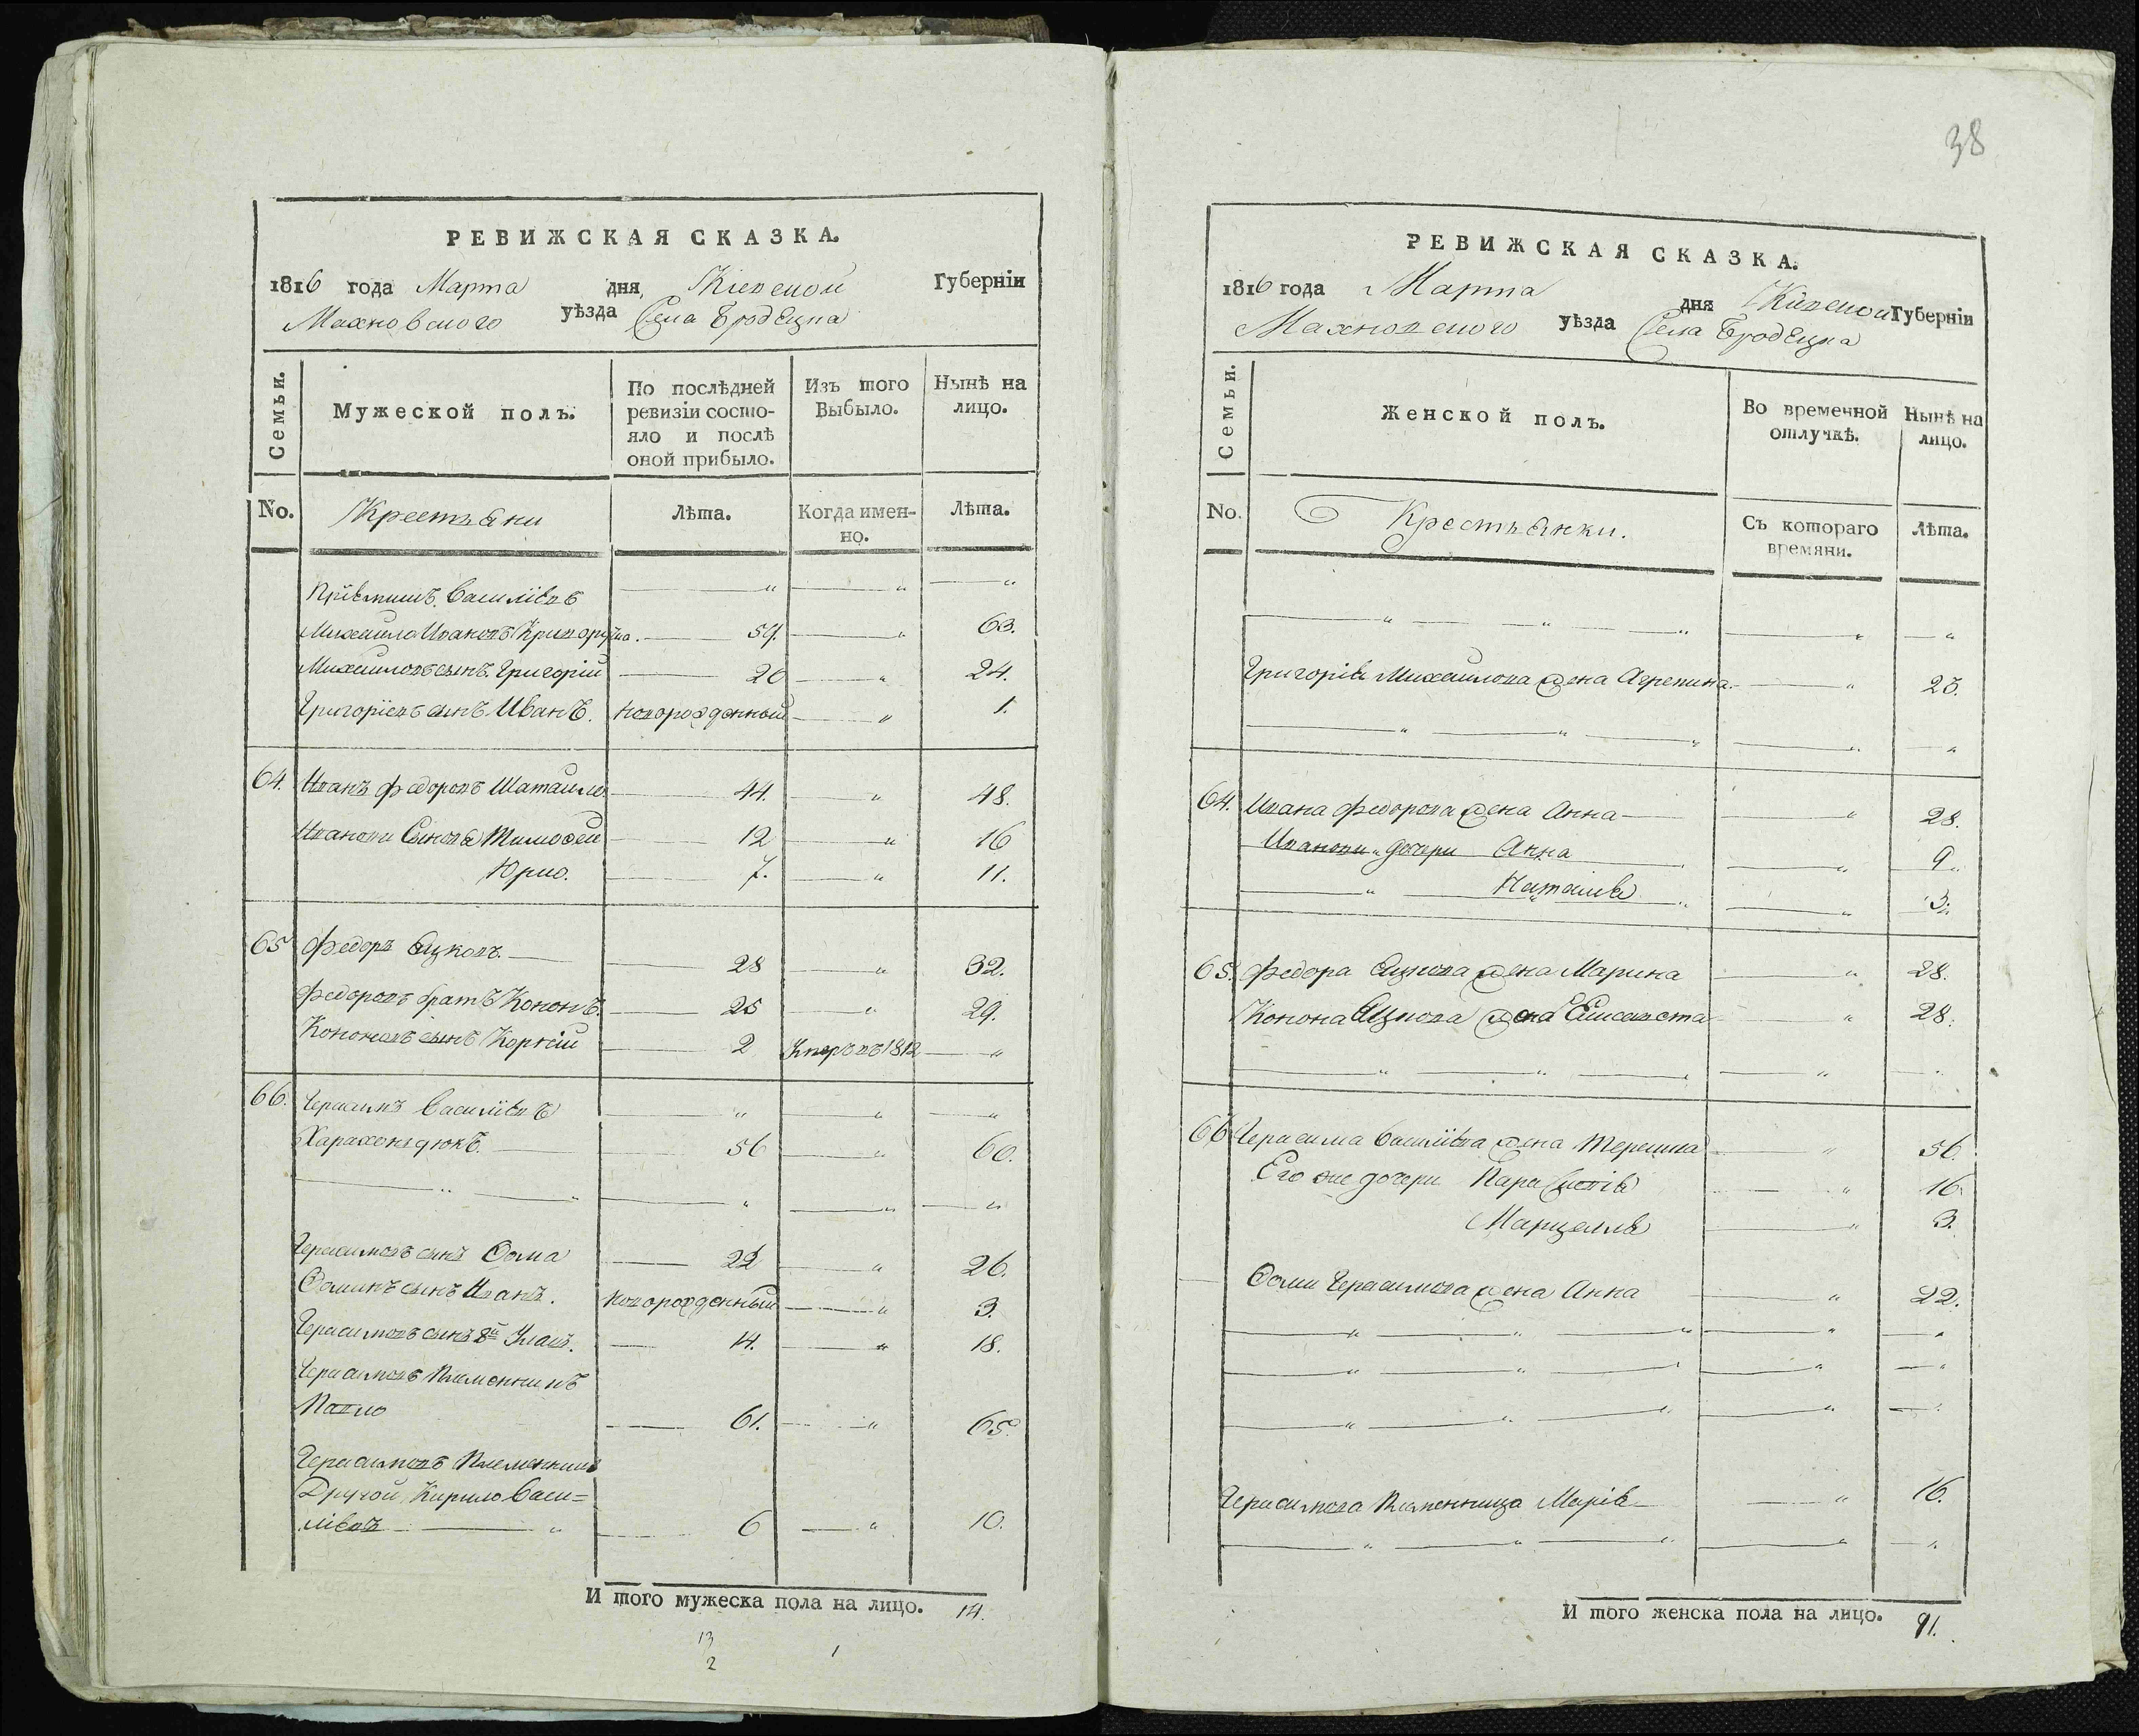 РЕВИЖСКАЯ СКАЗКА.
1816 года Марта дня, Кіевской Губерніи
Махновского уѣзда Села Бродецка
Семьи.
Мужеской полъ.
По послѣдней ревизіи состо-
яло и послѣ
оной прибыло.
Изъ того
Выбыло.
Нынѣ на
лицо.
No.
Крестьяни
Лѣта.
Когда имен-
но.
Лѣта.
Пріемышъ Василіевъ
Михайло Ивановъ Криворучка. 59. 63.
Михайловъ сынъ Григорій 20 24.
Григоріевъ сынъ Иванъ. новорожденный 1.
64. Иванъ Федоровъ Шатайло 44. 48.
Ивановы Сыновья Тимофей 12 16
Юрко. 7. 11.
65 Федоръ Яцковъ. 28 32.
Федоровъ братъ Кононъ. 25 29.
Кононовъ сынъ Корній 2 Умеръ въ 1812
66. Герасимъ Василіевъ
Харахондюкъ. 56 60.
Герасимовъ сынъ Фома 22 26.
Фоминъ сынъ Иванъ. новорожденный 3.
Герасимовъ сынъ 2й Улас. 14. 18.
Герасимовъ Племенникъ
Павло 61. 65.
Герасимовъ Племенникъ
Другой Кирило Васи=
ліевъ 6 10.
И того мужеска пола на лицо. 14.
13 1
2
38
РЕВИЖСКАЯ СКАЗКА.
1816 года Марта дня Кіевской Губерніи
Махновского уѣзда Села Бродецка
Семьи.
Женской полъ.
Во временной
отлучкѣ.
Нынѣ на
лицо.
No.
Крестьянки.
Съ котораго
времяни.
Лѣта.
Григорія Михайлова жена Агрепина 23.
64. Ивана Федорова жена Анна 28.
Ивановы дочери Анна 9
Наталія 3.
65. Федора Яцкова жена Марина 28.
Конона Яцкова жена Елисавета 28.
66 Герасима Василіева жена Терешка 56.
Его же дочери Параскевія 16.
Марцелля 3.
Фомы Герасимова жена Анна 22.
Герасимова Племенница Марія 16.
И того женска пола на лицо. 11.